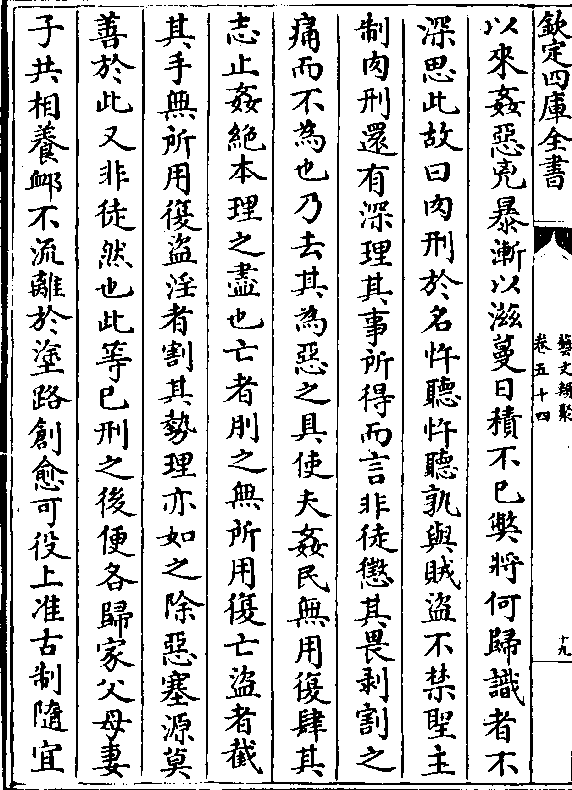 欽定四庫全書
藝文類聚
卷五十四
十九
以來姦惡兇暴漸以滋蔓日積不已弊將何歸識者不
深思此故曰肉刑於名忤聽忤聽孰與賊盗不禁聖主
制肉刑還有深理其事所得而言非徒懲其畏剥割之
痛而不為也乃去其為惡之具使夫姦民無用復肆其
志止姦絶本理之盡也亡者刖之無所用復亡盗者截
其手無所用復盗淫者割其勢理亦如之除惡塞源莫
善於此又非徒然也此等已刑之後便各歸家父母妻
子共相養䘏不流離於塗路創愈可役上准古制隨宜